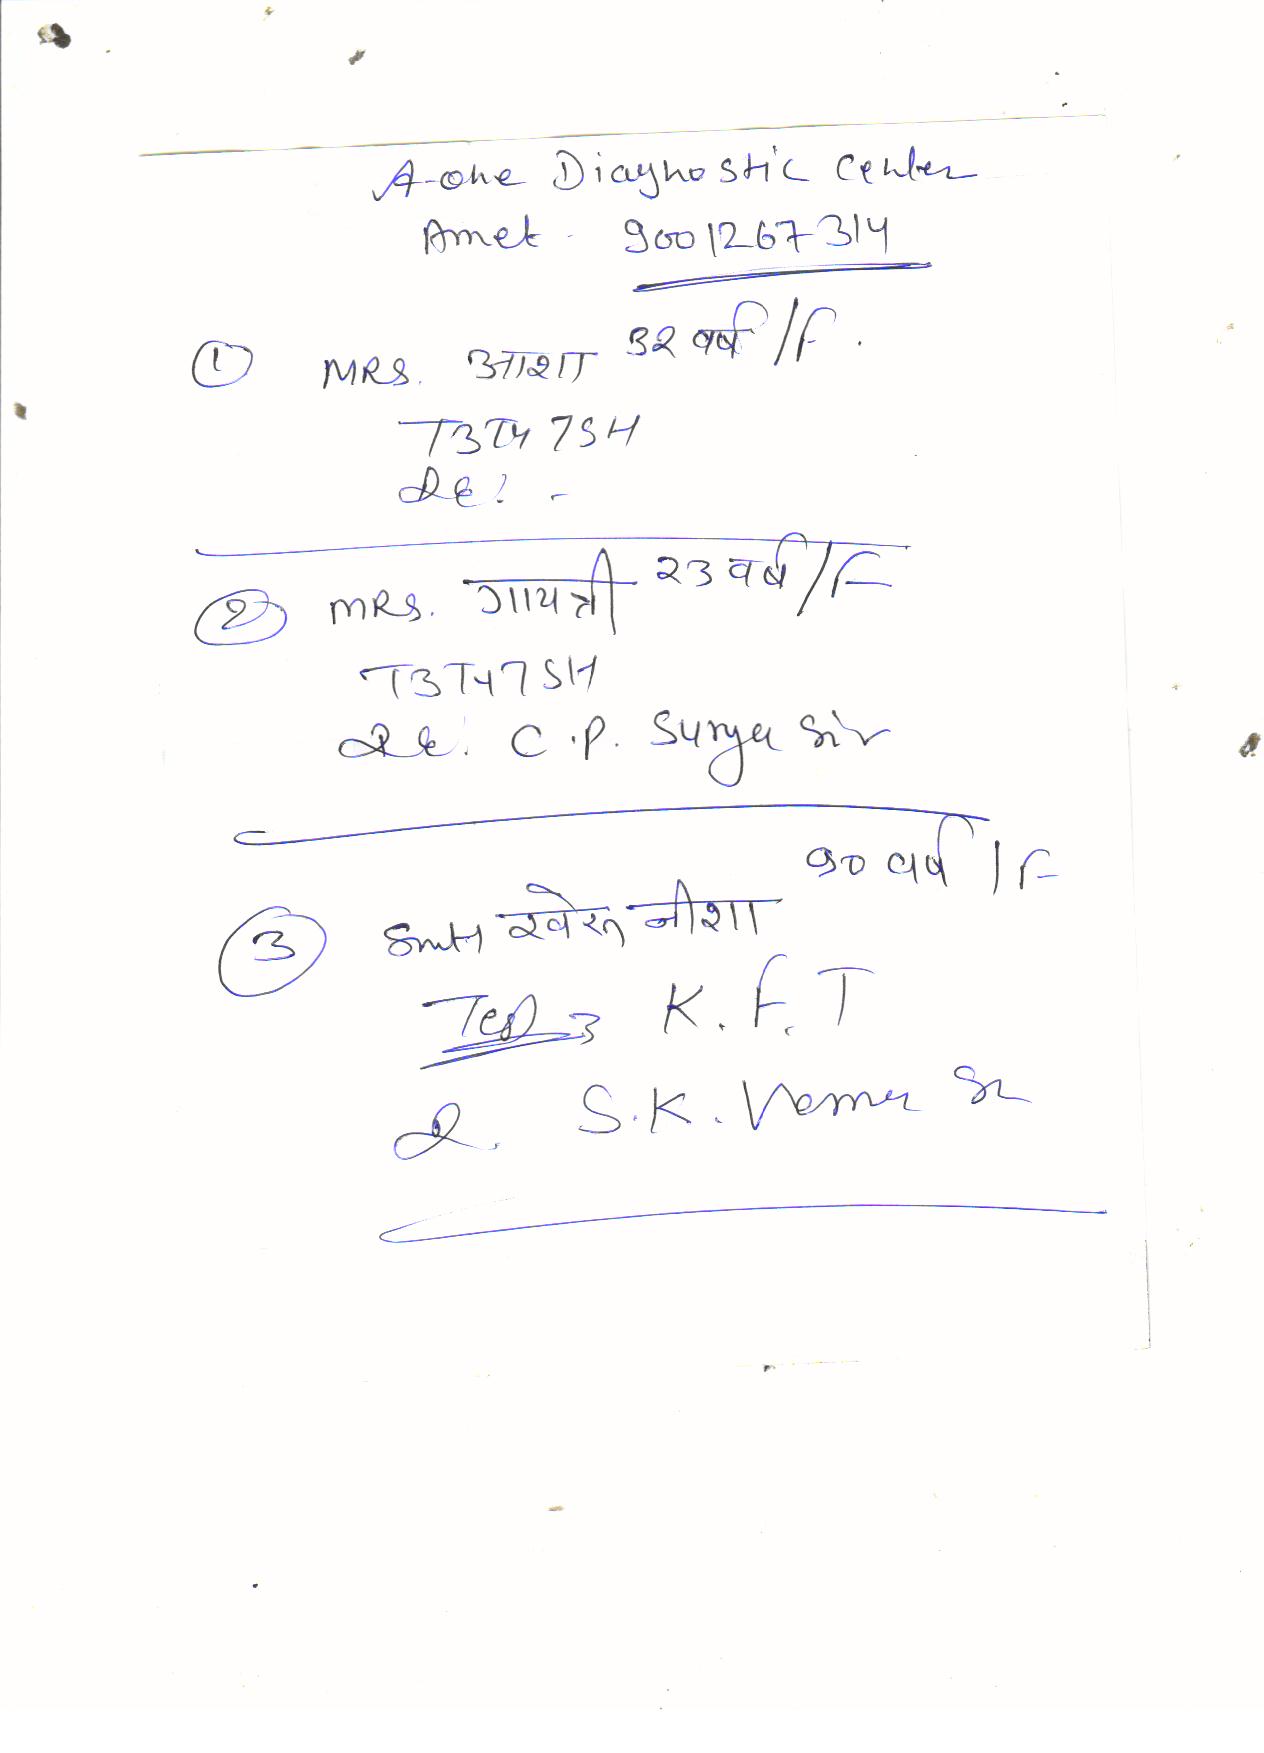 A-one Diagnostic Center
Amet - 9001267314
① MRS. आशा 32 वर्ष /F.
T3T4TSH
Re: -
② MRS. गायत्री 23 वर्ष/F
T3T4TSH
Re. C.P. Surya Sir
③ Smt खेरु नीशा 90 वर्ष /F
Test K.F.T
S.K. Verma Sr